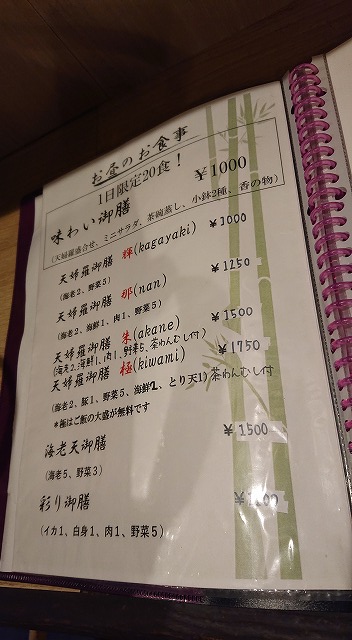 お昼のお食事
1日限定20食！
味わい御膳 ￥1000
（天婦羅盛合せ、ミニサラダ、茶碗蒸し、小鉢2種、香の物）
天婦羅御膳 輝(kagayaki) ￥1000
（海老2、野菜5）
天婦羅御膳 那(nan) ￥1250
（海老2、海鮮1、肉1、野菜5）
天婦羅御膳 朱(akane) ￥1500
(海老2、海鮮1、肉1、野菜5、茶わんむし付)
天婦羅御膳 極(kiwami) ￥1750
（海老2、豚1、野菜5、海鮮2、とり天1）茶わんむし付
＊極はご飯の大盛が無料です
海老天御膳 ￥1500
（海老5、野菜3）
彩り御膳
（イカ1、白身1、肉1、野菜5）